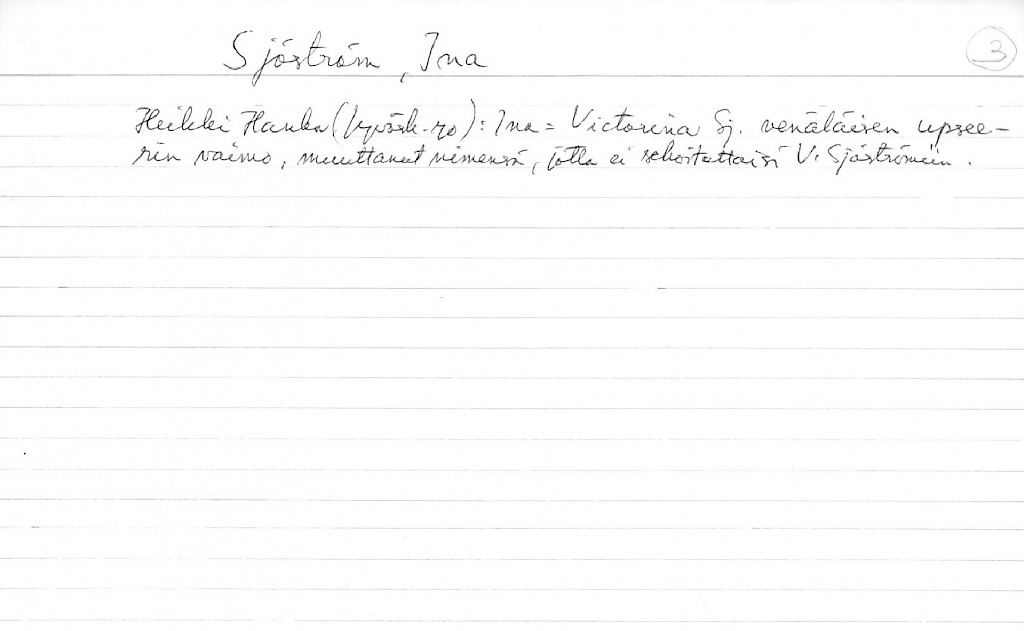 Sjöström, Ina
3
Heikki Hanka (Jyväsk-yo): Ina = Victorina Sj. venäläisen upsee-
rin vaimo, muuttanut nimensä, jotta ei sekoitettaisi V. Sjöströmiin.